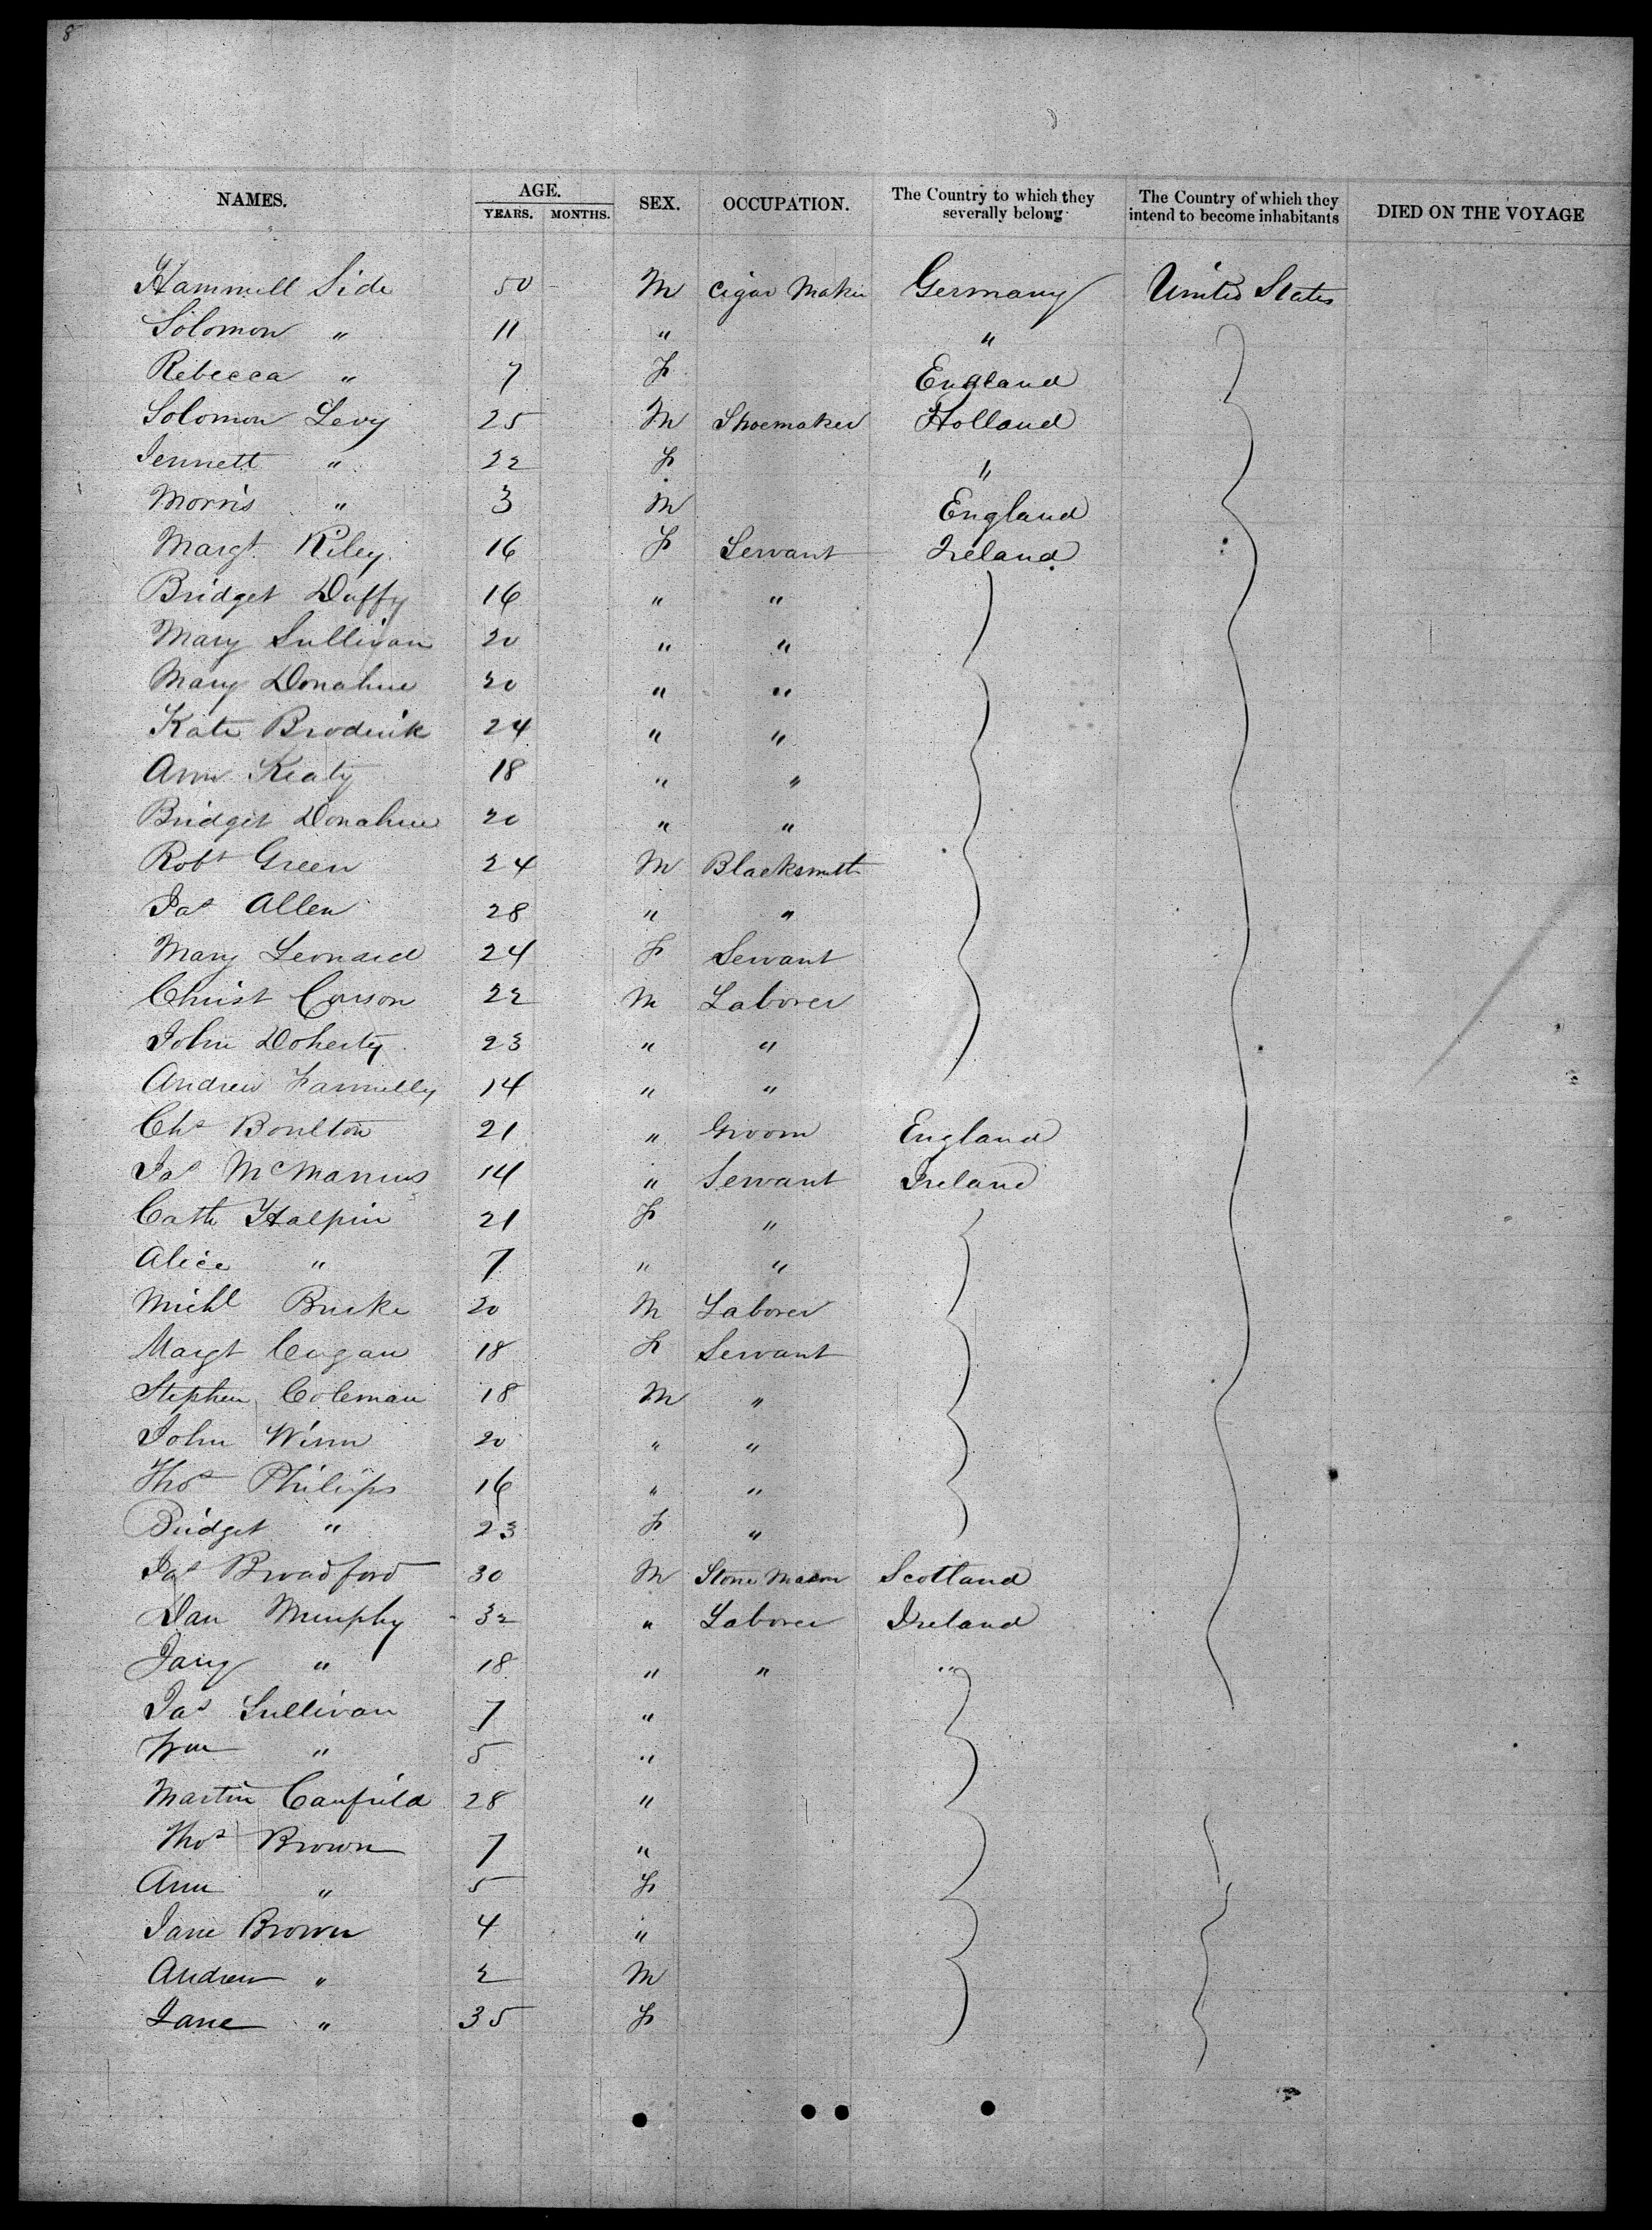 8
NAMES. AGE. YEARS. MONTHS. SEX. OCCUPATION. The Country to which they severally belong. The Country of which they intend to become inhabitants DIED ON THE VOYAGE
Hammell Side 50 M Cigar Maker Germany United States
Solomon " 11 " "
Rebecca " 7 F England
Solomon Levy 25 M Shoemaker Holland
Jennett " 22 F "
Morris " 3 M England
Margt Riley 16 F Servant Ireland
Bridget Duffy 16 " "
Mary Sullivan 20 " "
Mary Donahue 20 " "
Kate Broderik 24 " "
Ann Keaty 18 " "
Bridget Donahue 20 " "
Robt Green 24 M Blacksmith
Jas Allen 28 " "
Mary Leonard 24 F Servant
Christ Corson 22 M Laborer
John Doherty 23 " "
Andrew 14 " "
Chs Boulton 21 " Groom England
Jas McManus 14 " Servant Ireland
Cath Halpin 21 F "
Alice " 7 " "
Michl Burke 20 M Laborer
Margt Cugan 18 F Servant
Stephen Coleman 18 M "
John Winn 20 " "
Thos Philips 16 " "
Bridget " 23 F "
Jas Broadford 30 M Stone Mason Scotland
Dan Murphy 32 " Laborer Ireland
" 18 " " "
Jas Sullivan 7 "
Wm " 5 "
Martin Canfield 28 "
Thos Brown 7 "
Ann " 5 F
Jane Brown 4 "
Andrew " 2 M
Jane " 35 F